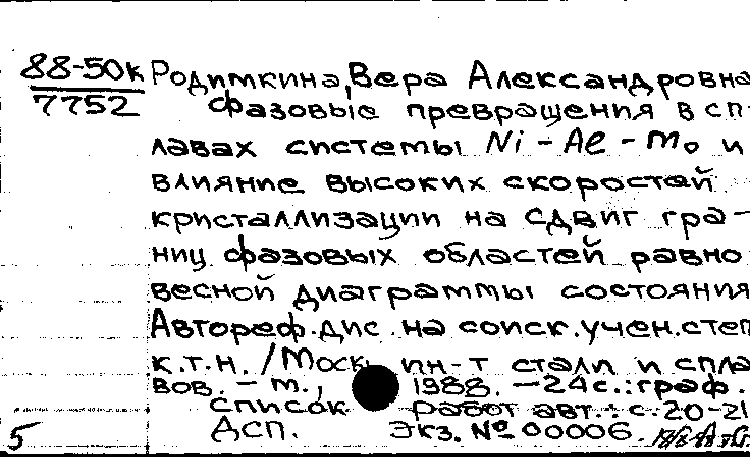 88-50к Родимкина, Вера Александровна
7752 Фазовые превращения в сп
лавах системы Ni-Al-Mo и
влияние высоких скоростей
кристаллизации на сдвиг гра-
ниц фазовых областей равно
весной диаграммы состояния
Автореф. дис. на соиск. учен. степ
к.т.н. / Моск. ин-т стали и спла
вов. - М., 1988. - 24 с.: граф.
Список работ авт.: с. 20-21
5 ДСП. Экз. № 00006.